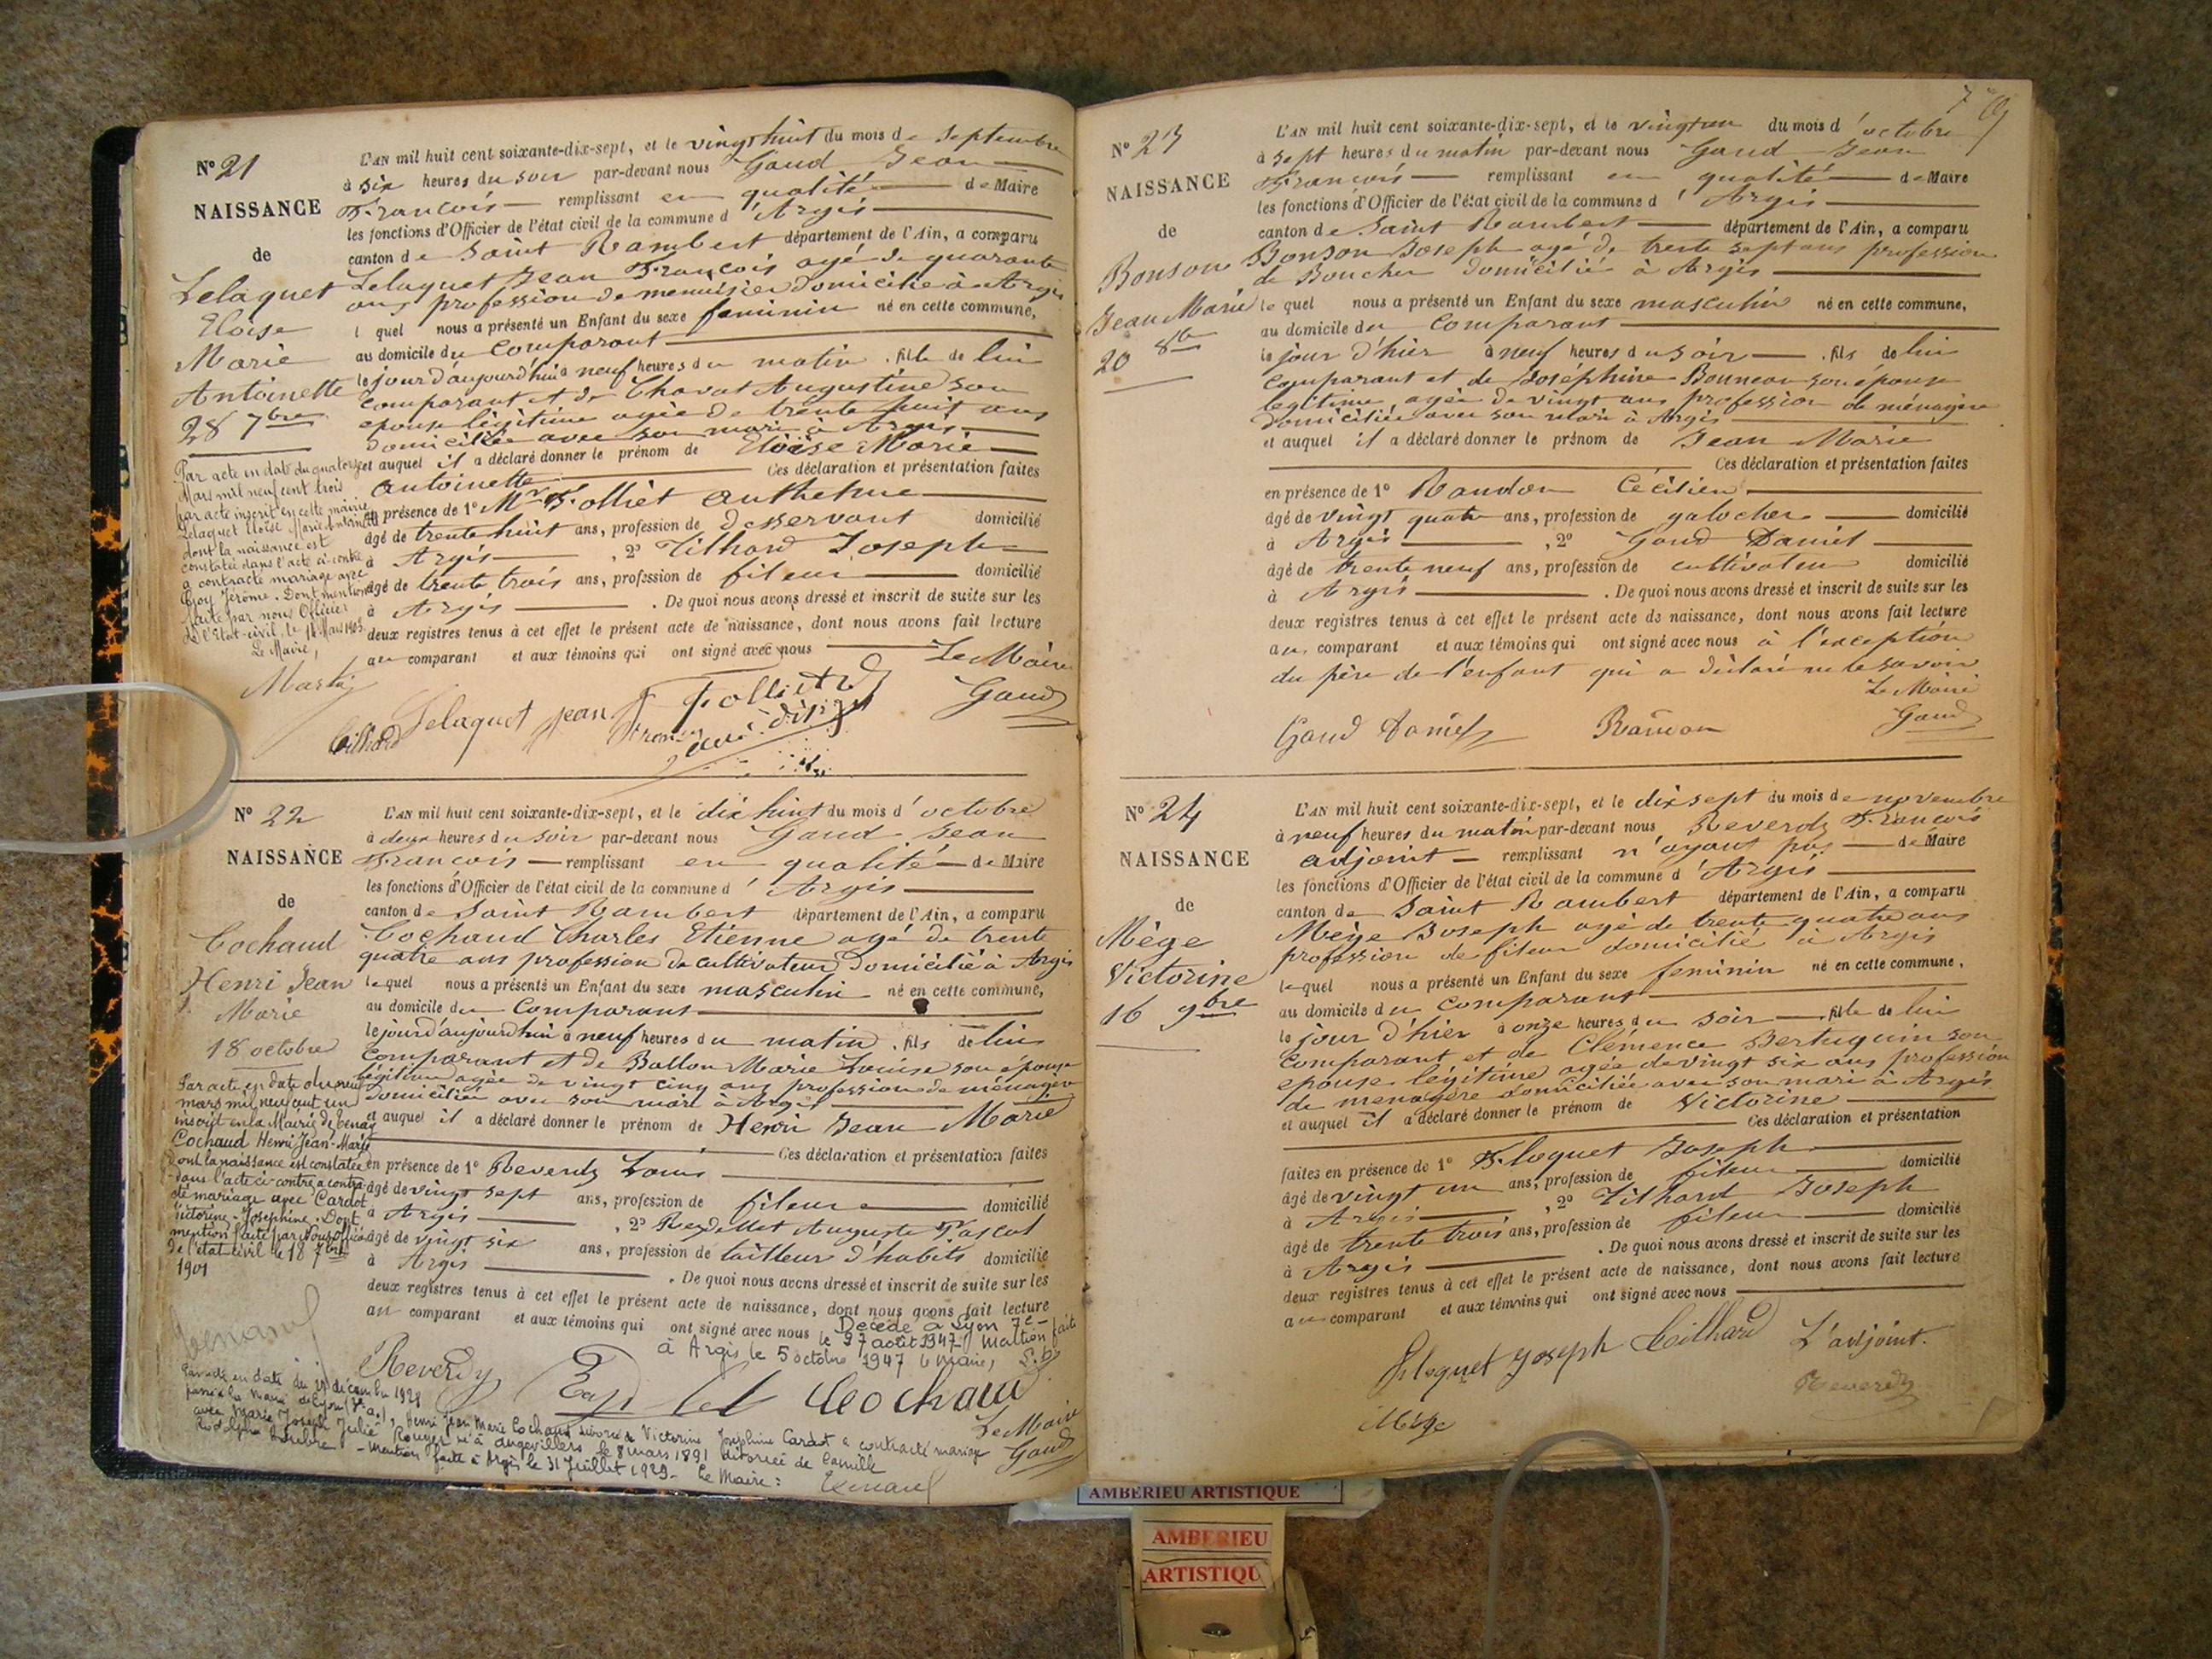 N° 21
NAISSANCE
de
Lelaquet
Eloïse
Marie
Antoinette
28 7bre
Par acte en date du quatorze
Mars mil neuf cent trois
par acte inscrit en cette mairie
Lelaquet Eloïse Marie Antoinette
dont la naissance est
constatée dans l'acte ci-contre
a contracté mariage avec
Goy Jérôme. Dont mention
faite par nous Officier
de l'Etat-civil, le 14 Mars 1903.
Le Maire,
L'AN mil huit cent soixante-dix-sept, et le vingt huit du mois de Septembre
à six heures du soir par-devant nous Gaud Jean
François remplissant en qualité de Maire
les fonctions d'Officier de l'état civil de la commune d'Argis
canton de Saint Rambert département de l'Ain, a comparu
Lelaquet Jean François agé de quarante
ans profession de menuisier domicilié à Argis
l quel nous a présenté un Enfant du sexe feminin né en cette commune,
au domicile du Comparant
le jour d'aujourd'hui à neuf heures du matin . fille de lui
comparant et de Chavat Augustine son
epouse légitime agée de trente huit ans
domiciliée avec son mari à Argis
et auquel il a déclaré donner le prénom de Eloïse Marie
Antoinette Ces déclaration et présentation faites
en présence de 1° Mr Folliet Anthelme
âgé de trente huit ans, profession de desservant domicilié
à Argis , 2° Tilhard Joseph
âgé de trente trois ans, profession de fileur domicilié
à Argis . De quoi nous avons dressé et inscrit de suite sur les
deux registres tenus à cet effet le présent acte de naissance, dont nous avons fait lecture
au comparant et aux témoins qui ont signé avec nous
Le Maire
Gaud
Tilhard Lelaquet Jean Folliet
curé d'Argis
N° 22
NAISSANCE
de
Cochaud
Henri Jean
Marie
18 octobre
Par acte en date du neuf
mars mil neuf cent un
inscrit en la Mairie de Tenay
Cochaud Henri Jean-Marie
dont la naissance est constatée
dans l'acte ci-contre a contrac-
té mariage avec Cardot
Victorine-Josephine. Dont
mention faite par Nous Officier
de l'état-civil le 18 7bre
1901
L'AN mil huit cent soixante-dix-sept, et le dix huit du mois d'octobre
à deux heures du soir par-devant nous Gaud Jean
François remplissant en qualité de Maire
les fonctions d'Officier de l'état civil de la commune d'Argis
canton de Saint Rambert département de l'Ain, a comparu
Cochaud Charles Etienne agé de trente
quatre ans profession de cultivateur domicilié à Argis
lequel nous a présenté un Enfant du sexe masculin né en cette commune,
au domicile du Comparant
le jour d'aujourd'hui à neuf heures du matin . fils de lui
comparant et de Ballon Marie Louise son épouse
légitime agée de vingt cinq ans profession de ménagère
domiciliée avec son mari à Argis
et auquel il a déclaré donner le prénom de Henri Jean Marie
Ces déclaration et présentation faites
en présence de 1° Reverdy Louis
âgé de vingt sept ans, profession de fileur domicilié
à Argis , 2° Reydellet Auguste Pascal
âgé de vingt six ans, profession de tailleur d'habits domicilié
à Argis . De quoi nous avons dressé et inscrit de suite sur les
deux registres tenus à cet effet le présent acte de naissance, dont nous avons fait lecture
au comparant et aux témoins qui ont signé avec nous
Décédé à Lyon 7e
le 27 août 1947 Mention faite
à Argis le 5 octobre 1947 le Maire,
Reverdy Cochaud
Le Maire
Gaud
en date du 29 décembre 1928
passé à la mairie de Lyon, Henri Jean Marie Cochaud divorcé de Victorine Joséphine Cardot a contracté mariage
avec Marie Joseph Julie Rouyer né à Angevillers le 8 mars 1891 divorcée de Camille
Rodolphe - Mention faite à Argis le 31 Juillet 1929. Le Maire :
N° 23
NAISSANCE
de
Bonson
Jean Marie
20 8bre
L'AN mil huit cent soixante-dix-sept, et le vingt un du mois d'octobre
à sept heures du matin par-devant nous Gaud Jean
François remplissant en qualité de Maire
les fonctions d'Officier de l'état civil de la commune d'Argis
canton de Saint Rambert département de l'Ain, a comparu
Bonson Joseph agé de trente sept ans profession
de Boucher domicilié à Argis
le quel nous a présenté un Enfant du sexe masculin né en cette commune,
au domicile du Comparant
le jour d'hier à neuf heures du soir . fils de lui
comparant et de Joséphine Bonneau son épouse
légitime agée de vingt ans profession de ménagère
domiciliée avec son mari à Argis
et auquel il a déclaré donner le prénom de Jean Marie
Ces déclaration et présentation faites
en présence de 1° Randon Cécilien
âgé de vingt quatre ans, profession de galocher domicilié
à Argis , 2° Gaud Daniel
âgé de trente neuf ans, profession de cultivateur domicilié
à Argis . De quoi nous avons dressé et inscrit de suite sur les
deux registres tenus à cet effet le présent acte de naissance, dont nous avons fait lecture
au comparant et aux témoins qui ont signé avec nous à l'exception
du père de l'enfant qui a déclaré ne le savoir
Le Maire
Gaud Daniel Randon Gaud
N° 24
NAISSANCE
de
Mège
Victorine
16 9bre
L'AN mil huit cent soixante-dix-sept, et le dix sept du mois de novembre
à neuf heures du matin par-devant nous Reverdy François
adjoint remplissant n'ayant pas de Maire
les fonctions d'Officier de l'état civil de la commune d'Argis
canton de Saint Rambert département de l'Ain, a comparu
Mège Joseph agé de trente quatre ans
profession de fileur domicilié à Argis
lequel nous a présenté un Enfant du sexe feminin né en cette commune,
au domicile du Comparant
le jour d'hier à onze heures du soir . fille de lui
comparant et de Clémence Bertuguin son
epouse légitime agée de vingt six ans profession
de menagère domiciliée avec son mari à Argis
et auquel il a déclaré donner le prénom de Victorine
Ces déclaration et présentation
faites en présence de 1° Floquet Joseph
âgé de vingt un ans, profession de fileur domicilié
à Argis , 2° Tilhard Joseph
âgé de trente trois ans, profession de fileur domicilié
à Argis . De quoi nous avons dressé et inscrit de suite sur les
deux registres tenus à cet effet le présent acte de naissance, dont nous avons fait lecture
au comparant et aux témoins qui ont signé avec nous
Floquet Joseph Tilhard L'adjoint.
Reverdy
Mège
AMBERIEU ARTISTIQUE
AMBERIEU
ARTISTIQU